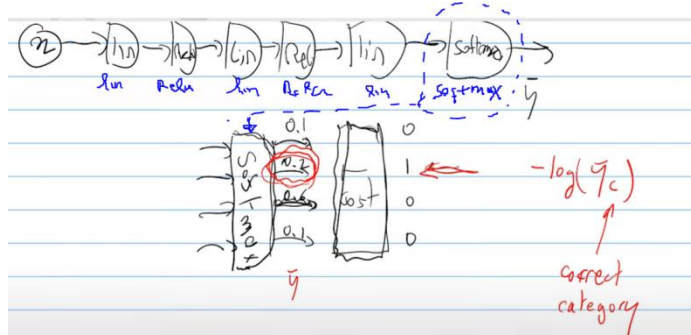 x lin Relu Lin Rel lin softmax
lin Relu lin ReLu lin softmax ȳ
0.1 0
Softmax cost 1 -log(ȳc)
0
0.1 0
ȳ correct
category